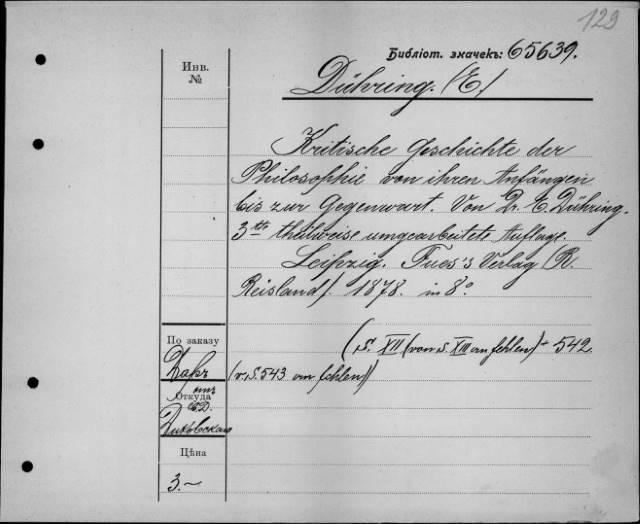 129
Библіот. значекъ: 65639.
Инв.
№
Dühring. (E.)
Kritische Geschichte der
Philosophie von ihren Anfängen
bis zur Gegenwart. Von Dr. E. Dühring.
3te theilweise umgearbeitete Auflage.
Leipzig. Fues's Verlag (R.
Reisland). 1878. in 8°.
(S. XII (von S. XIII an fehlen) + 542
(v. S. 543 an fehlen))
По заказу
Даръ
Откуда
отъ
Цѣна
3.~